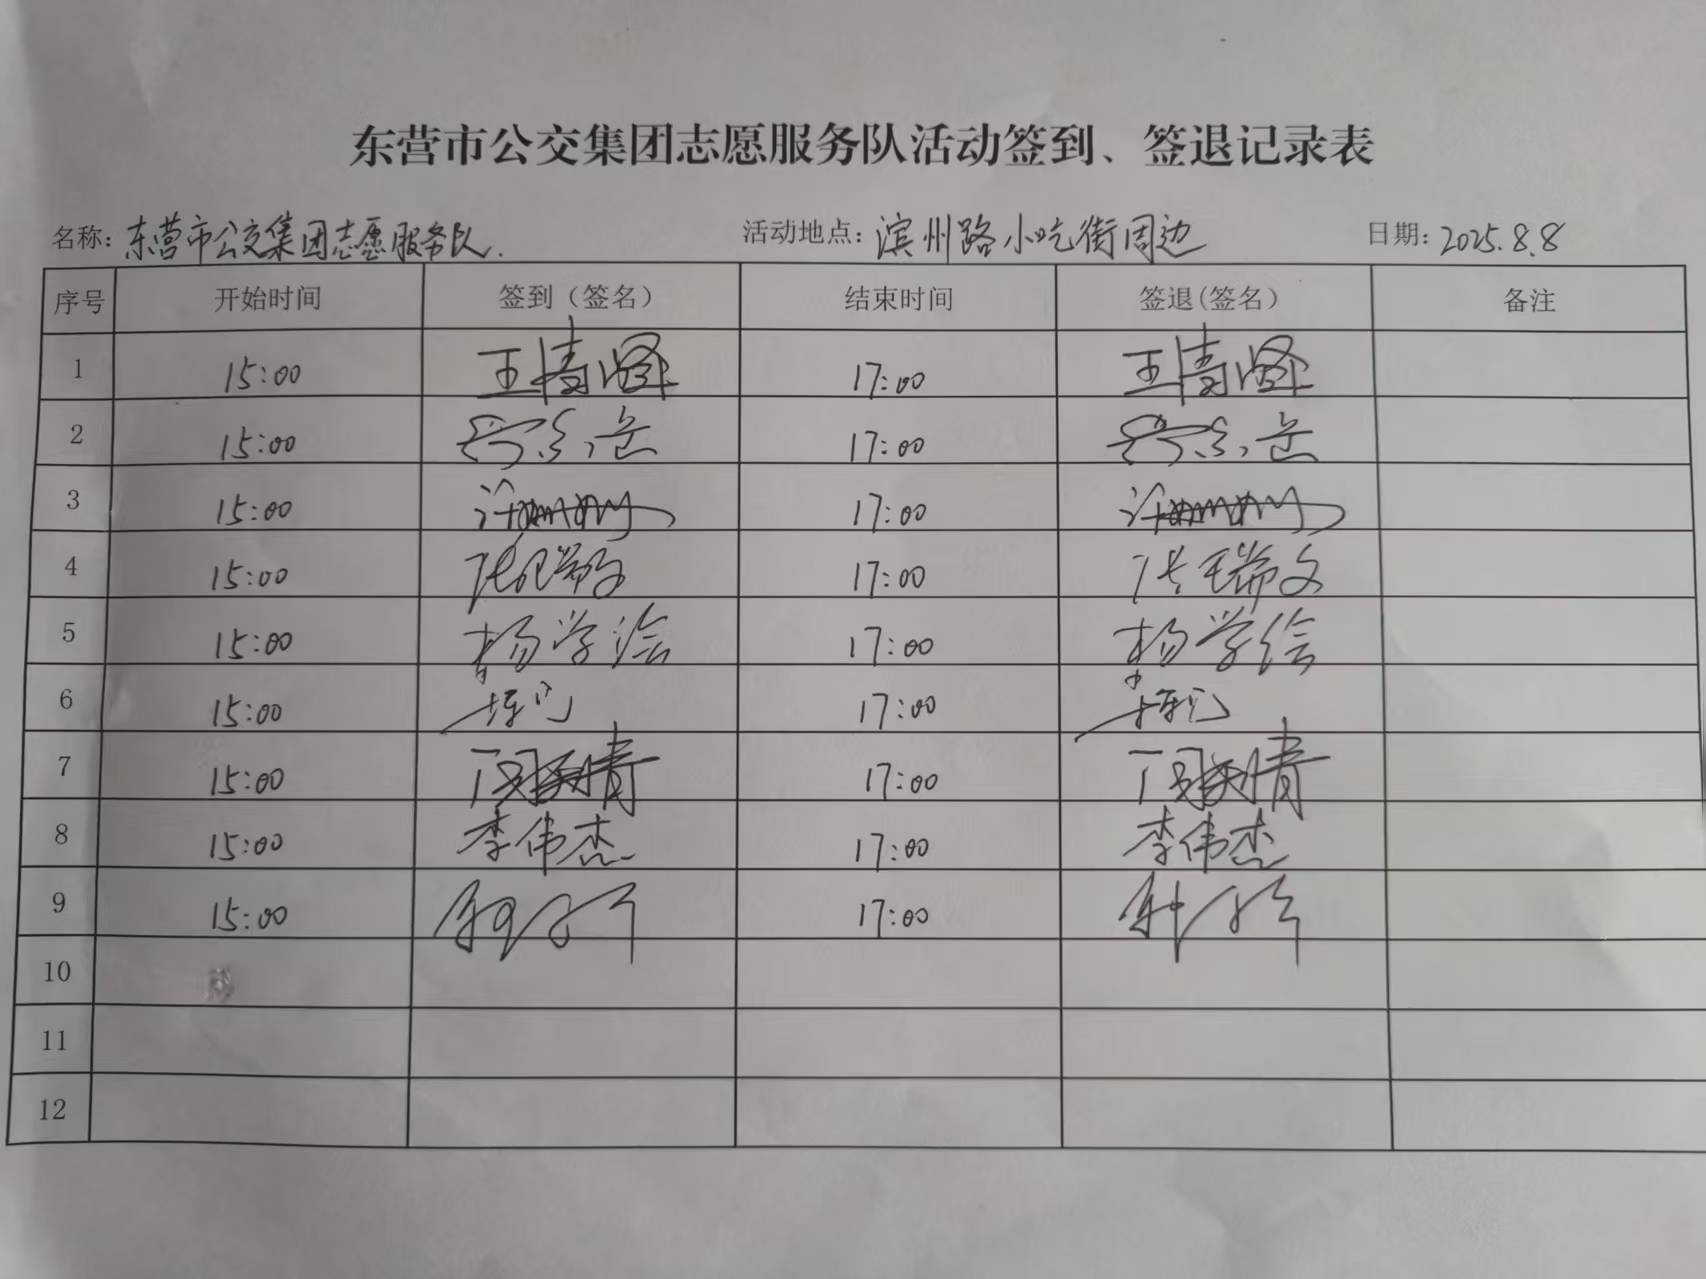 东营市公交集团志愿服务队活动签到、签退记录表
名称：东营市公交集团志愿服务队. 活动地点：滨州路小吃街周边 日期：2025.8.8
序号 开始时间 签到（签名） 结束时间 签退(签名） 备注
1 15:00 17:00
2 15:00 17:00
3 15:00 17:00
4 15:00 张瑞文 17:00 张瑞文
5 15:00 杨学绘 17:00 杨学绘
6 15:00 17:00
7 15:00 17:00
8 15:00 李伟杰 17:00 李伟杰
9 15:00 17:00
10
11
12